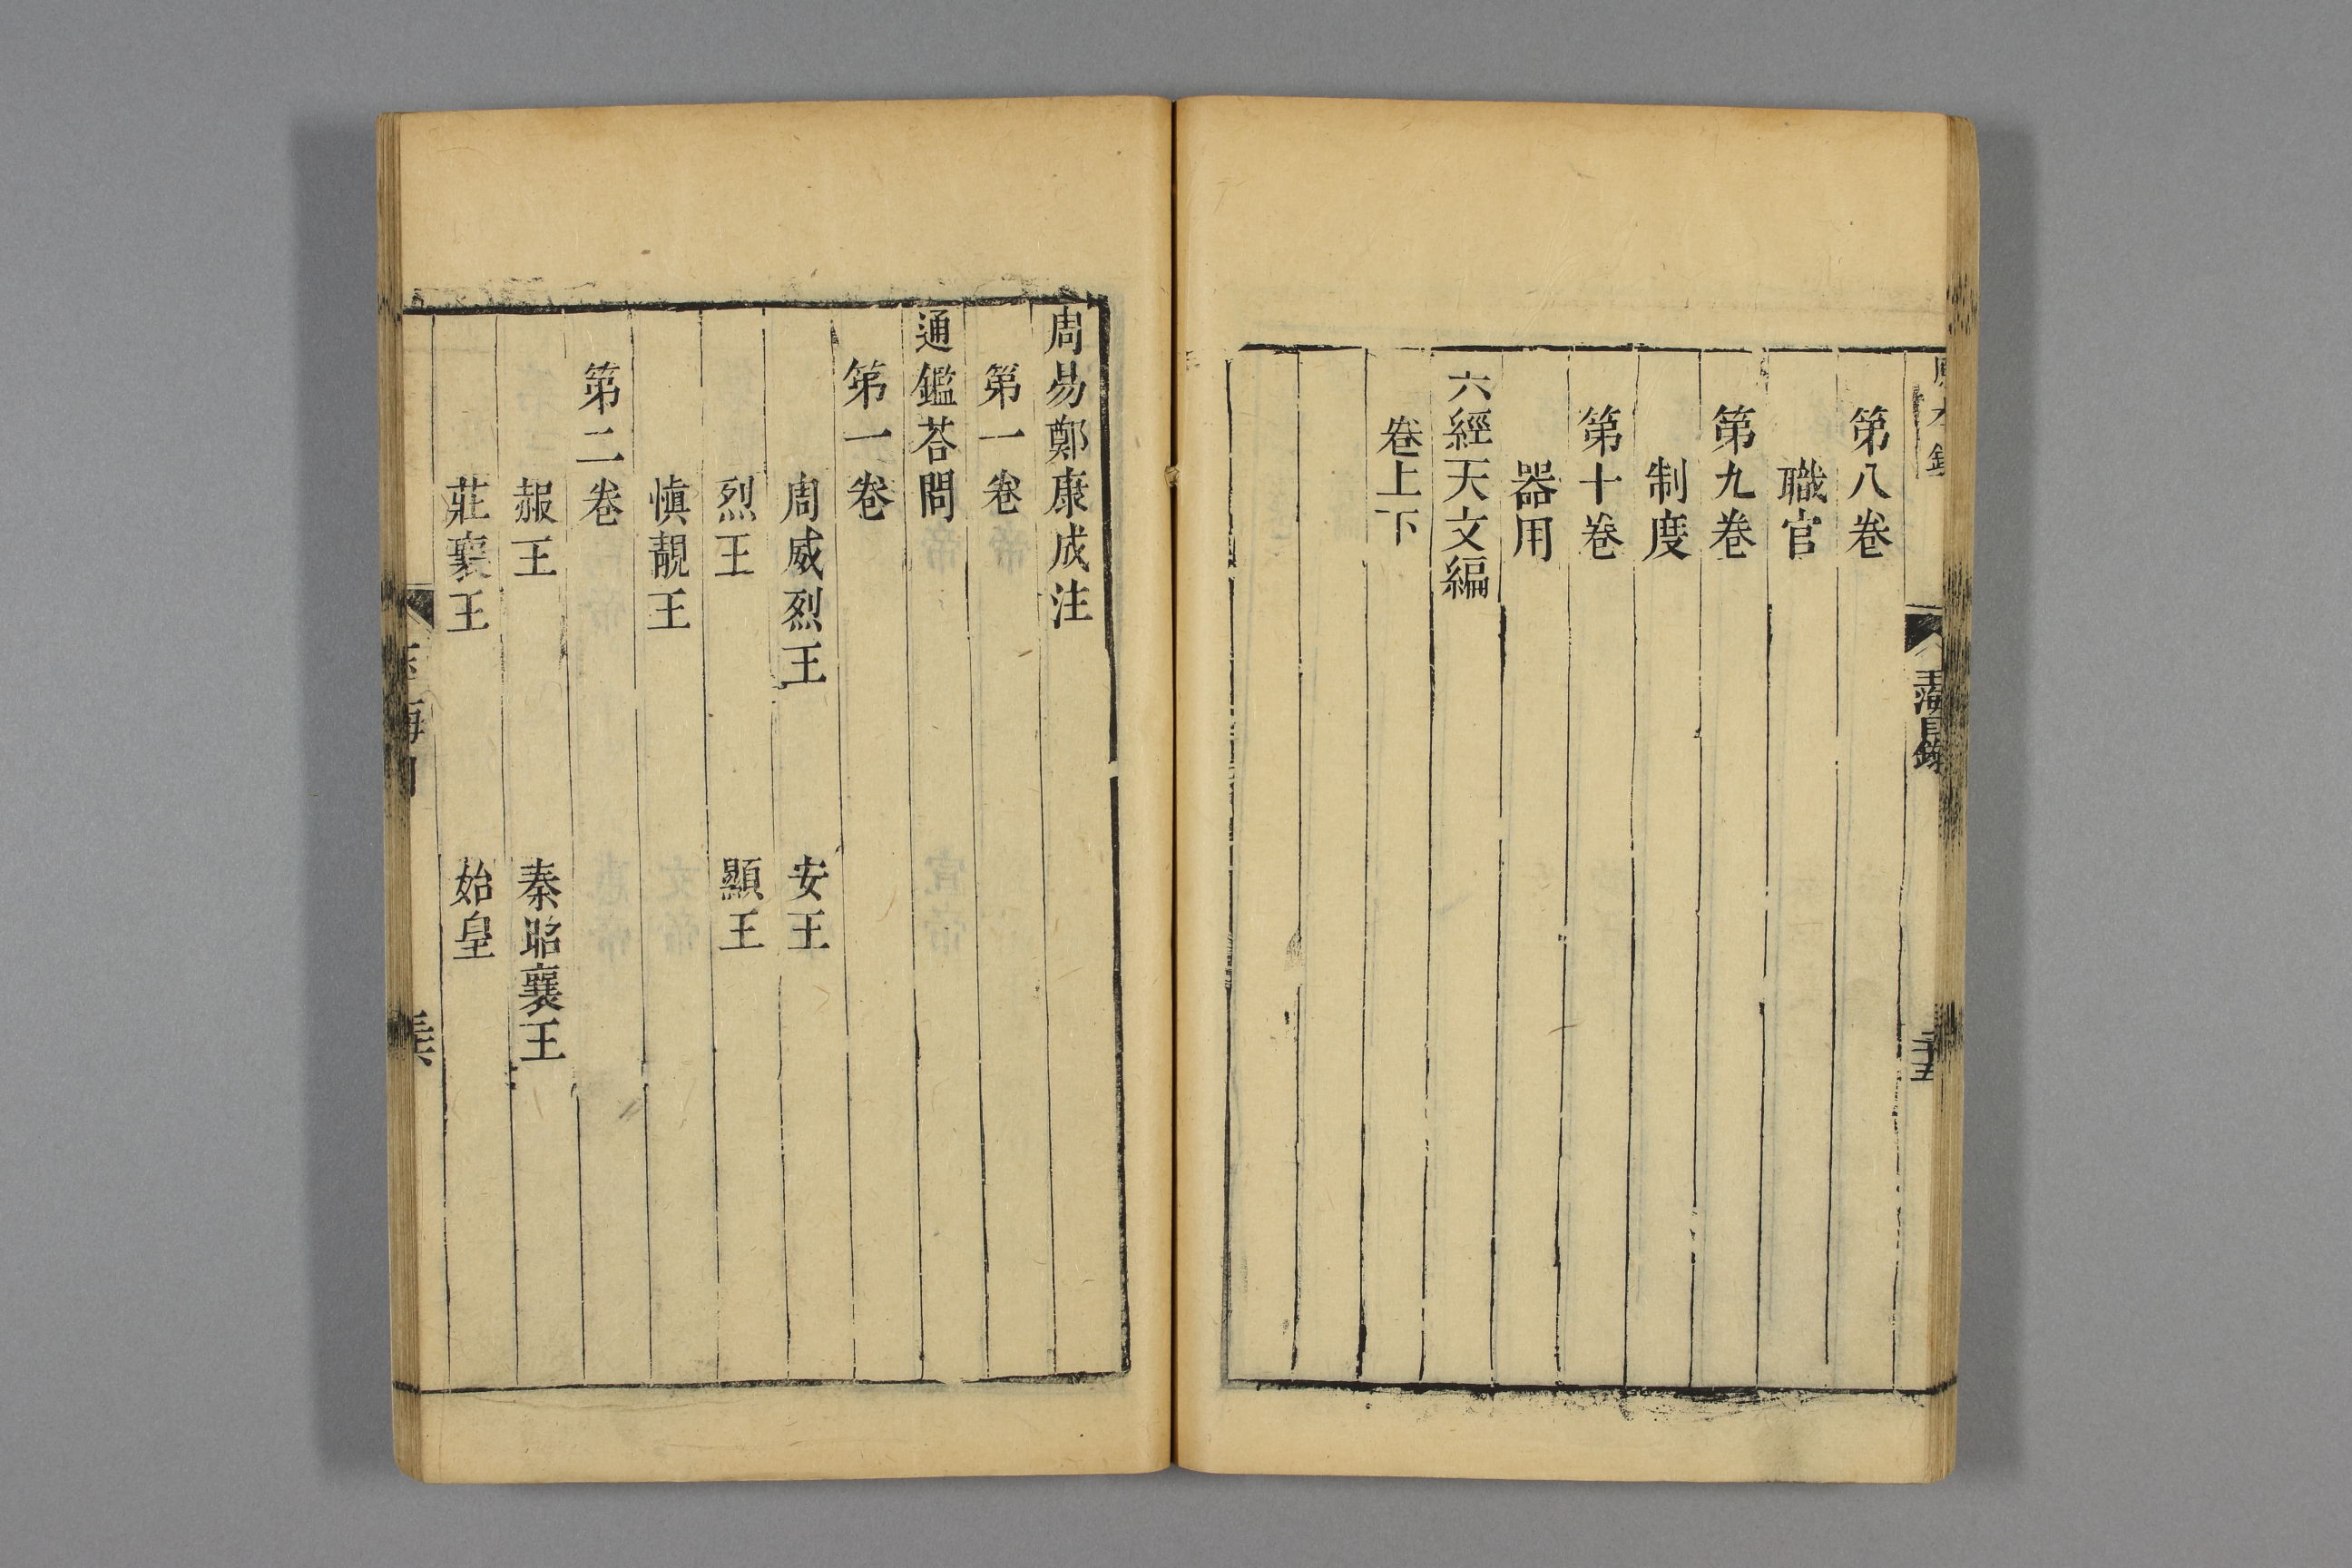 第八卷
職官
第九卷
制度
第十卷
器用
六經天文編
卷上下
玉海目錄
周易鄭康成注
第一卷
通鑑荅問
第一卷
周威烈王 安王
烈王 顯王
愼靚王
第二卷
赧王 秦昭襄王
莊襄王 始皇